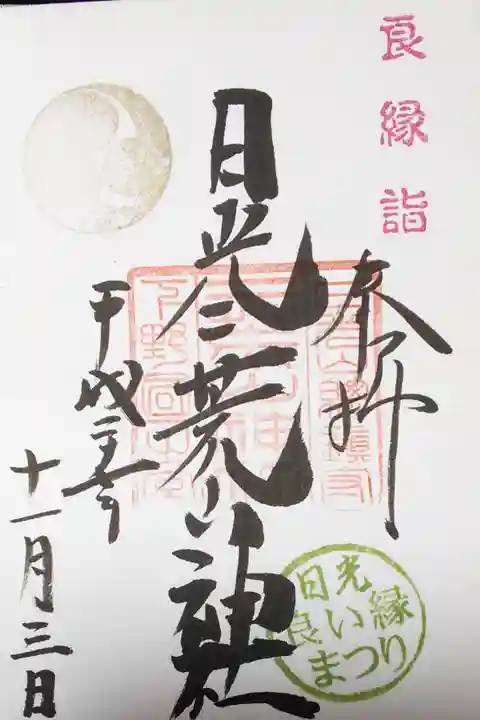 良縁詣
奉拝
日光二荒山神社
平成二十五年
十一月三日
日光
良い縁
まつり